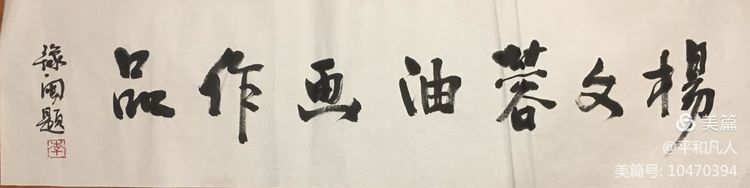 楊文蓉油画作品
豫閩題
李
美篇
@平和凡人
美篇号: 10470394